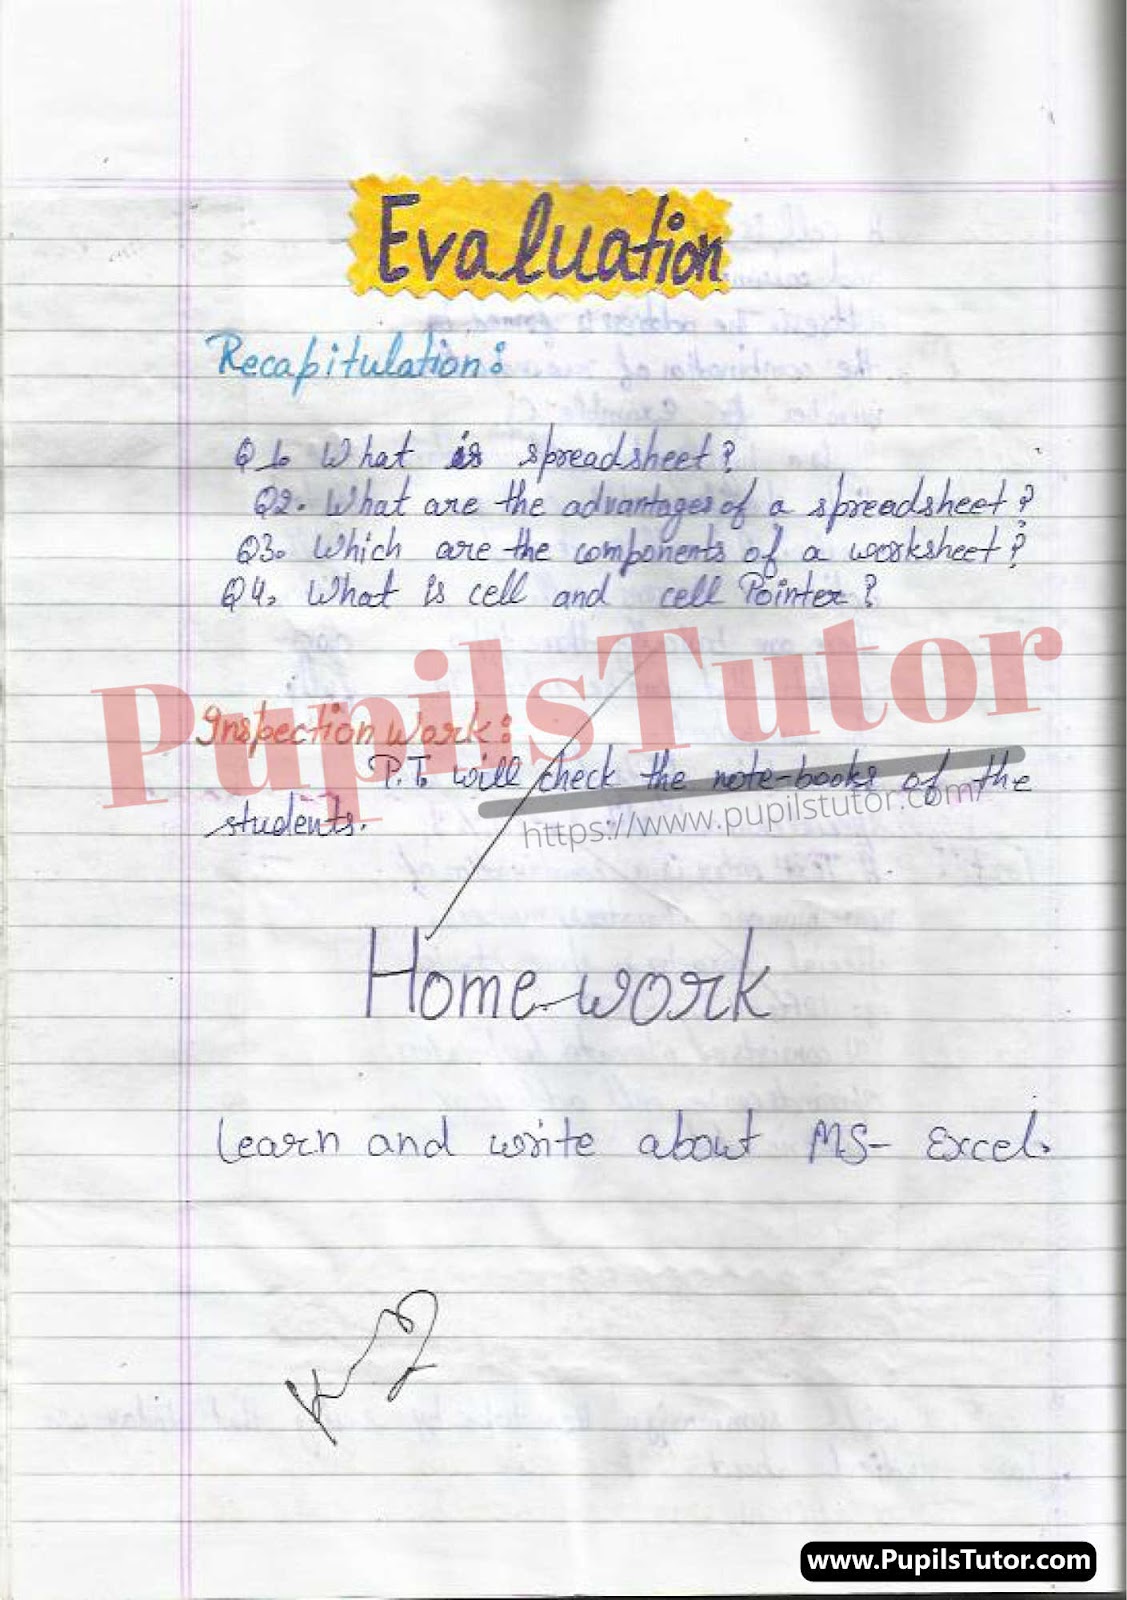 Evaluation
Recapitulation:
Q1. What is spreadsheet?
Q2. What are the advantages of a spreadsheet?
Q3. Which are the components of a worksheet?
Q4. What is cell and cell Pointer?
PupilsTutor
Inspection Work:
P.T. will check the note-books of the
students.
https://www.pupilstutor.com/
Home work
Learn and write about MS- Excel.
www.PupilsTutor.com